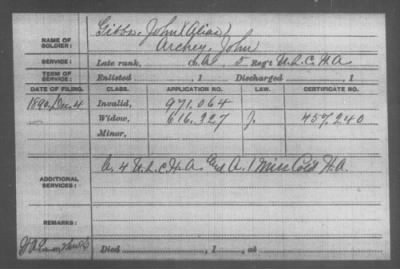 Gibbs, John (Alias)
NAME OF SOLDIER: Archey, John
SERVICE: Late rank, Co. A, 5 Reg't U.S.C.H.A.
TERM OF SERVICE: Enlisted , 1 Discharged , 1
DATE OF FILING. CLASS. APPLICATION NO. LAW. CERTIFICATE NO.
1890, Dec. 4 Invalid, 971.064
Widow, 616.927 J. 457.240
Minor,
ADDITIONAL SERVICES: A. 4 U.S.C.H.A. and A. 1 Miss Cold H.A.
REMARKS:
Died , 1 , at